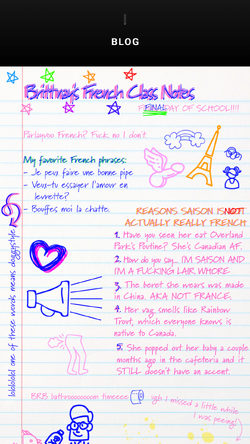 BLOG
Brittnay's French Class Notes
FINAL DAY OF SCHOOL!!!!
Parlayvoo French? Fuck no I don't.
My favorite French phrases:
- Je peux faire une bonne pipe
- Veux-tu essayer l'amour en
levrette?
- Bouffes moi la chatte.
lololol one of these words means doggystyle
REASONS SAISON IS NOT
ACTUALLY REALLY FRENCH:
1. Have you seen her eat Overland
Park's Poutine? She's Canadian AF.
2. How do you say... I'M SAISON AND
I'M A FUCKING LIAR WHORE
3. The beret she wears was made
in China. AKA NOT FRANCE.
4. Her vag smells like Rainbow
Trout, which everyone knows is
native to Canada.
5. She popped out her baby a couple
months ago in the cafeteria and it
STILL doesn't have an accent.
BRB bathrooooooom timeeee
ugh I missed a little while
I was peeing!!